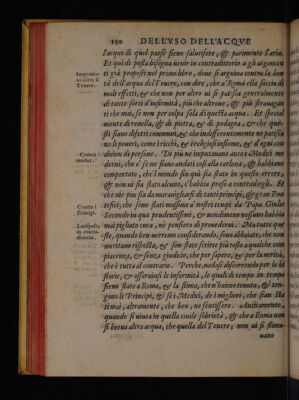 190 DELL'VSO DELL'ACQVE
l'acque di quel paese sieno salutifere, & parimente l'aria.
Et quì di posta bisogna uenir in contradittorio a gli argomen
ti già proposti nel primo libro, doue si arguiua contra la bon
tà dell'acqua del Teuere, con dire, che a Roma ella faccia di
mali effetti, & che non per altro ui si patisca generalmente
di tante sorti d'infirmità, più che altroue, & più strauagan
ti che mai, se non per colpa sola di questa acqua. Et special
mente di renella, & di pietra, & di podagra, & che que-
sti siano difetti communi, & che indifferentemente ne patisca
no li poueri, come i ricchi, & i religiosi insieme, & d'ogni con
ditione di persone. Di più ne imputauano ancor i Medici mo
derni, che è se ne siano andati così alla carlona, & habbiano
comportato, che'l mondo sia quì sia stato in questo errore,
& non ui sia stato alcuno, c'habbia preso a contradirgli. Et
che uie più sia da marauigliarsi di tanti principi, & gran Pon
tefici, che sono stati massime a nostri tempi da Papa Giulio
Secondo in qua prudentissimi, & nondimeno nessuno habbia
mai pigliato cura, nè pensiero di prouederci. Ma tutte que
ste, quando ben uerremo considerando, sono abbaiate, che non
meritano risposta, & son state scritte più tosto a qualche com
piacenza, & senza giudicio, che per sapere, & per la uerità,
che è tutta al contrario. Perche, uadasi discorrendo per le hi
storie, & osseruinsi le infermità, le quali di tempo in tempo
sieno state a Roma, & la stima, che n'hanno tenuta, & ten-
gono li Principi, & se i Medici, de i migliori, che stan sta
timati, altramente, che ben, ne sentissero. Anticamente,
quando si uiueua in quella ciuile sobrietà, & che a Roma non
si beeua altra acqua, che quella del Teuere; non ui si stima-
uano
Imputatio
ni contra il
Teuere.
Contra i
medici.
Contra i
Principi.
La risposta
in contra-
dittorio.